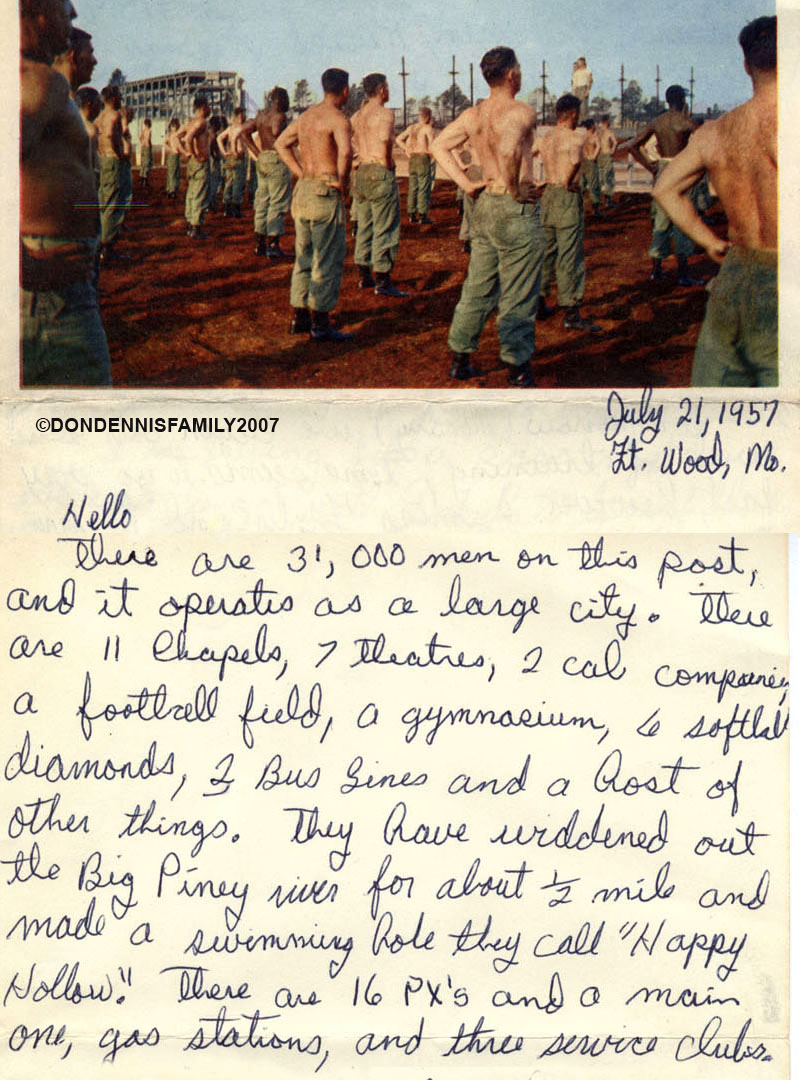 ©DONDENNISFAMILY2007
July 21, 1957
Ft. Wood, Mo.
Hello
There are 31,000 men on this post,
and it operates as a large city. There
are 11 Chapels, 7 theatres, 2 cab companies,
a football field, a gymnasium, 6 softball
diamonds, 2 Bus Lines and a host of
other things. They have widdened out
the Big Piney river for about ½ mile and
made a swimming hole they call "Happy
Hollow". There are 16 PX's and a main
one, gas stations, and three service clubs.